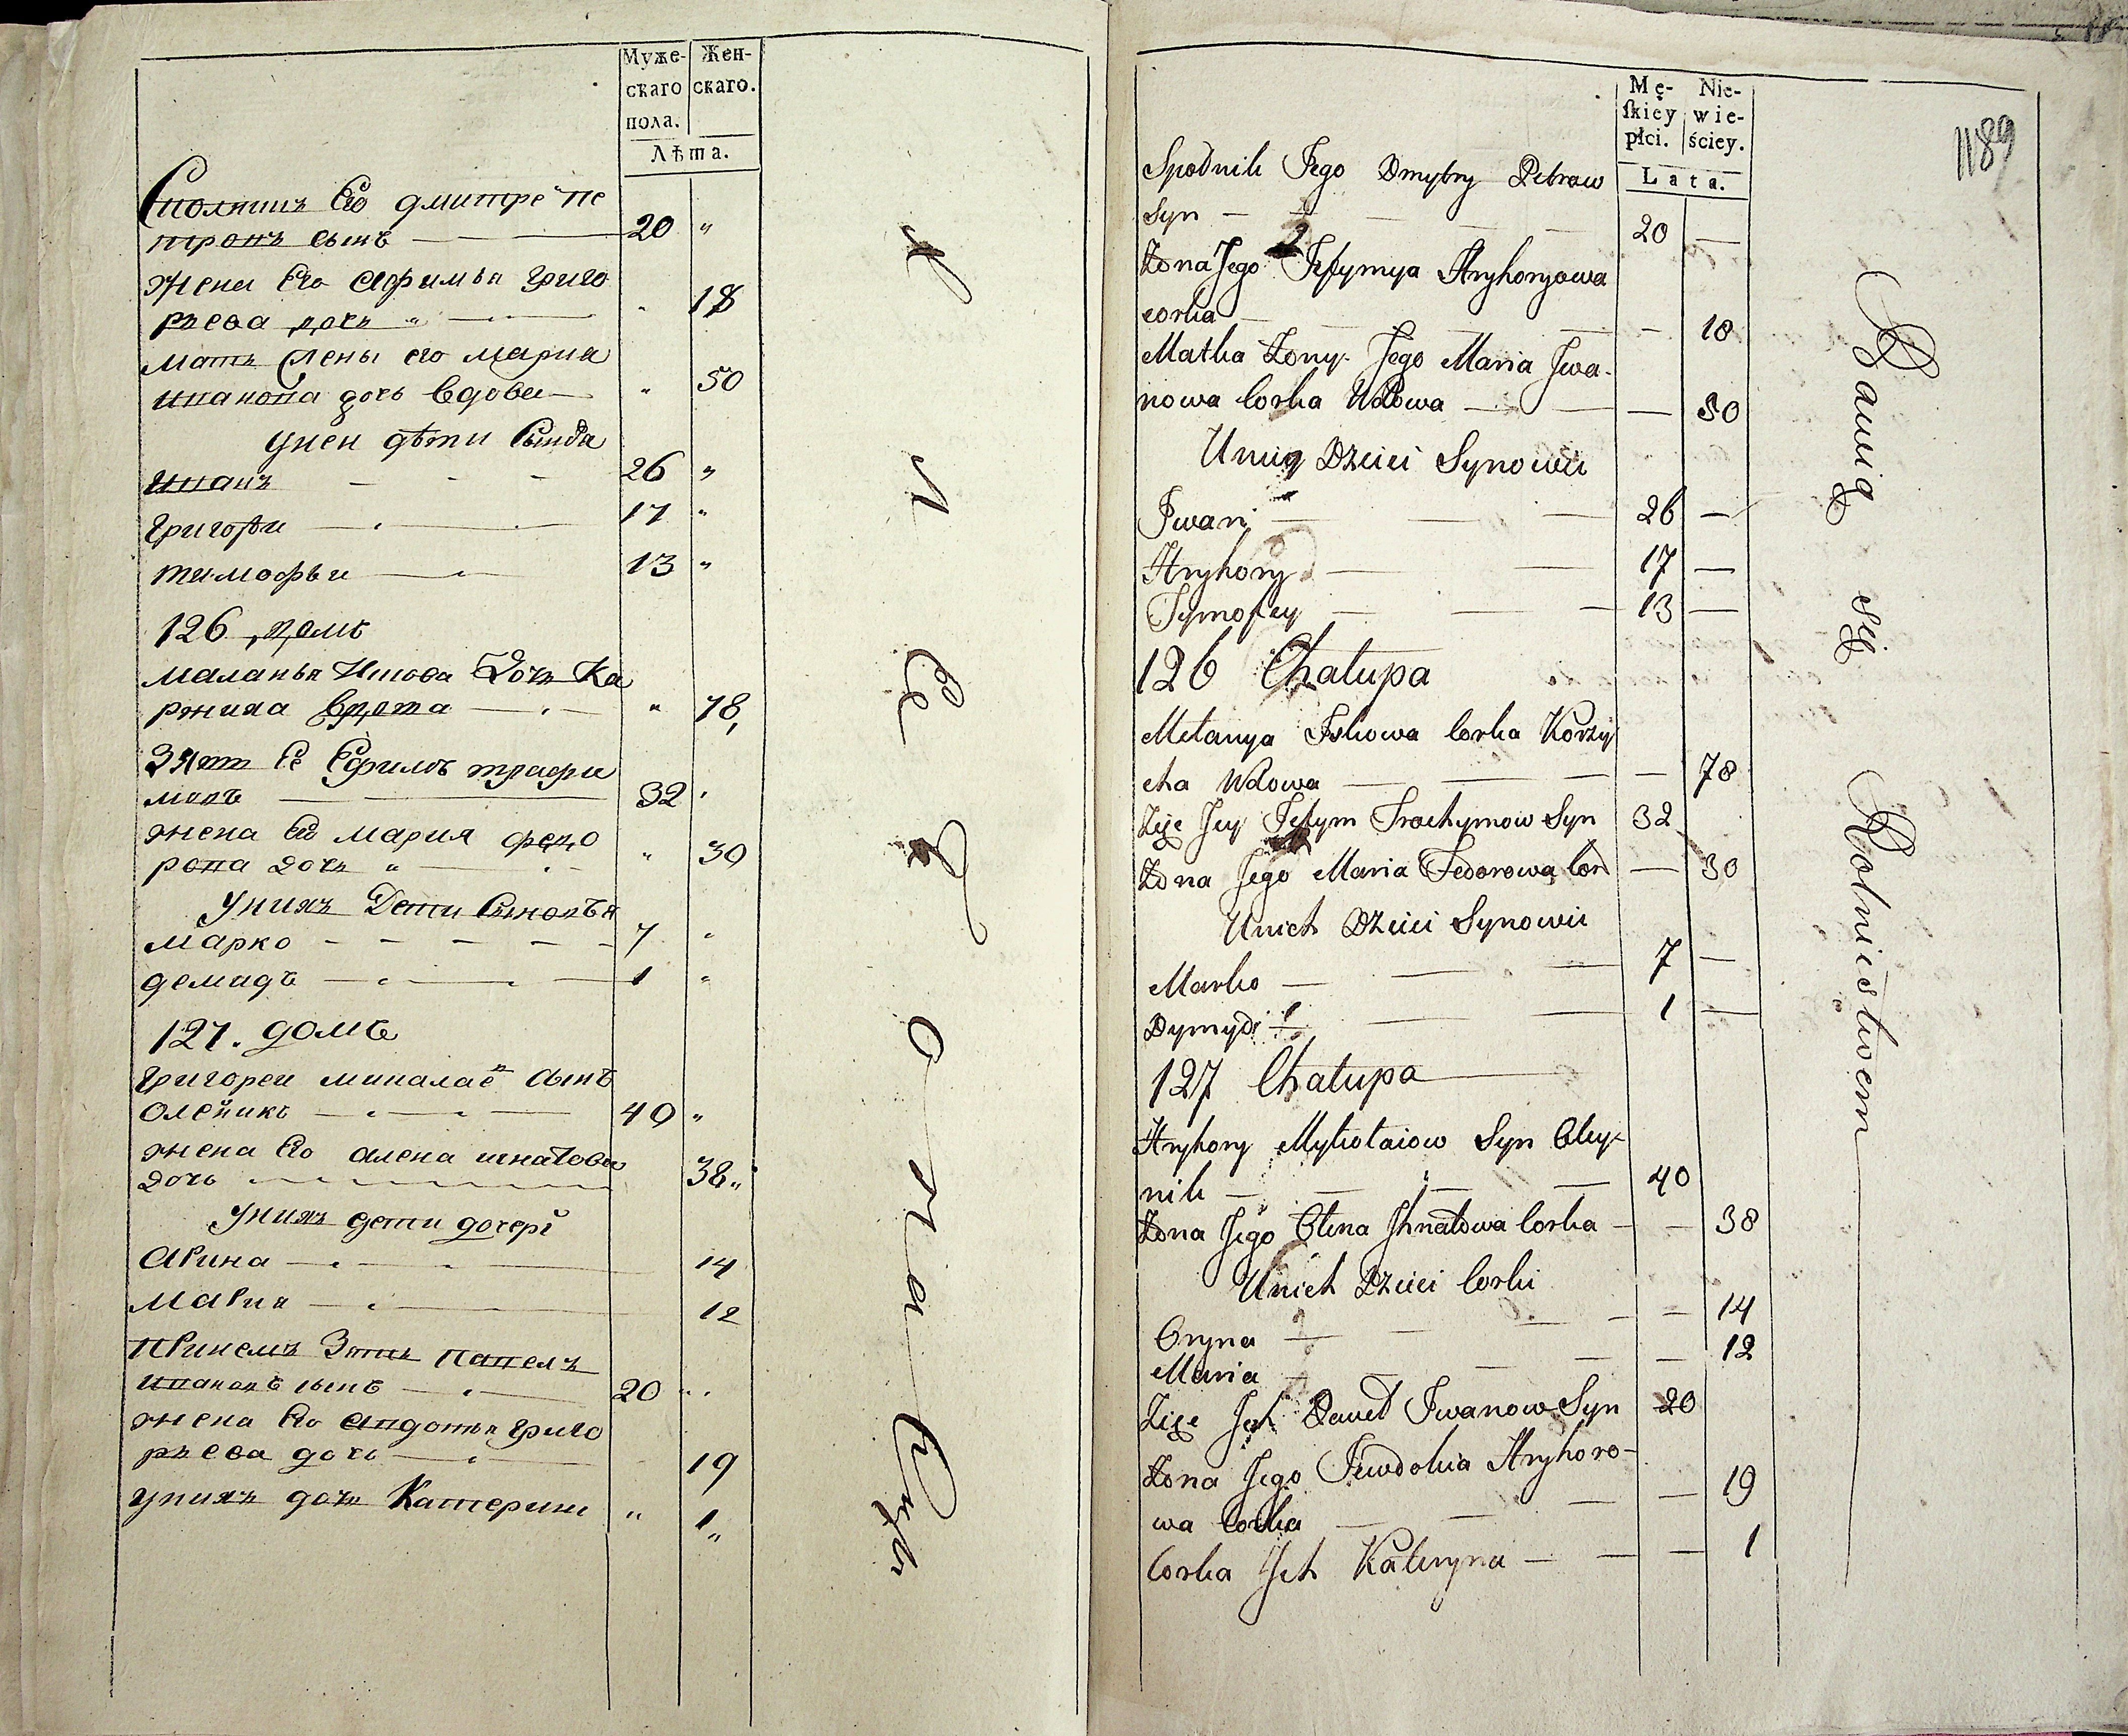 Муже-
скаго
пола.
Жен-
скаго.
Лѣта.
Сполникъ Его дмитре пе
тровъ сынъ — 20 "
жена Его Афимья григо
рьева дочь " — " 18
мать жены его мария
иванова дочь вдова — " 50
унеи дѣти Сынова
Иванъ - - - 26 "
григореи — 17 "
тимофѣи — 13 "
126 домъ
маланья Ицкова Дочь Ка
ржиха вдова — " 78,
Зять Её Ефимъ трафи
мовъ — 32 "
жена Его мария федо
рова дочь " — " 30
Унихъ Дети Сыновья
марко - - - - - 7 "
демидъ — 1 "
127. домъ
григореи миколаевъ сынъ
олеиникъ — 40 "
жена Его алена игнатова
дочь — 38 "
Унихъ дети дочери
Арина — 14
Мария — 12
Приемъ Зять павелъ
ивановъ сынъ — 20 "
жена Его авдотья григо
рьева дочь — 19
унихъ дочь Катерина " 1 "
Mę-
skiey
płci.
Nie-
wie-
ściey.
Lata.
1189
Spodnik Jego Dmytry Petrow
Syn — — 20 —
Żona Jego Jefymya Hryhoryowa
corka — — 18
Matka Żony Jego Maria Jwa-
nowa Corka Wdowa — — 50
Uniey Dzieci Synowie
Jwan — — 26 —
Hryhory — — 17 —
Tymofey — — 13 —
126 Chałupa
Mełanya Jskowa Corka Korży
cha Wdowa — — 78
Zięc Jey Jefym Trochymow Syn 32
Żona Jego Maria Fedorowa Cor — 30
Unich Dzieci Synowie
Marko — — 7 —
Dymyd — — 1 —
127 Chałupa
Hryhory Mykołaiow Syn Oley-
nik — — 40
Żona Jego Ołena Jhnatowa Corka — — 38
Unich Dzieci Corki
Oryna — — 14
Maria — — 12
Zięc Jch Paweł Jwanow Syn 20
Żona Jego Jewdokia Hryhoro-
wa Corka — — 19
Corka Jch Kateryna — — 1
Bawią się Rolnictwem